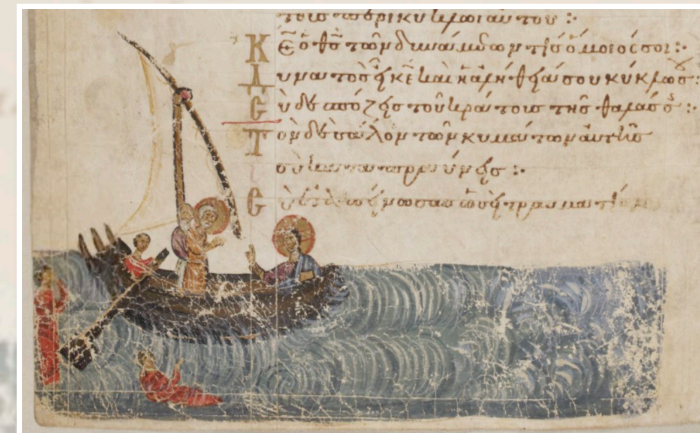 τοῖς περικύκλω αὐτοῦ :·
Κε ὁ θς τῶν δυνάμεων τίς ὅμοιός σοι :·
Δυνατὸς εἶ κε καὶ ἡ ἀλήθειά σου κύκλω σου :·
Cὺ δεσπόζεις τοῦ κράτους τῆς θαλάσσης
Τὸν δὲ σάλον τῶν κυμάτων αὐτῆς
σὺ καταπραΰνεις :·
Cὺ ἐταπείνωσας ὡς τραυματίαν